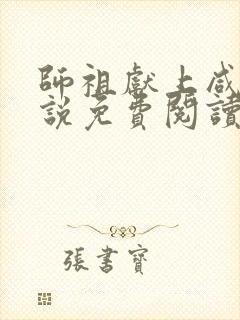 師祖獻上咸
說免費閱讀
張書寶